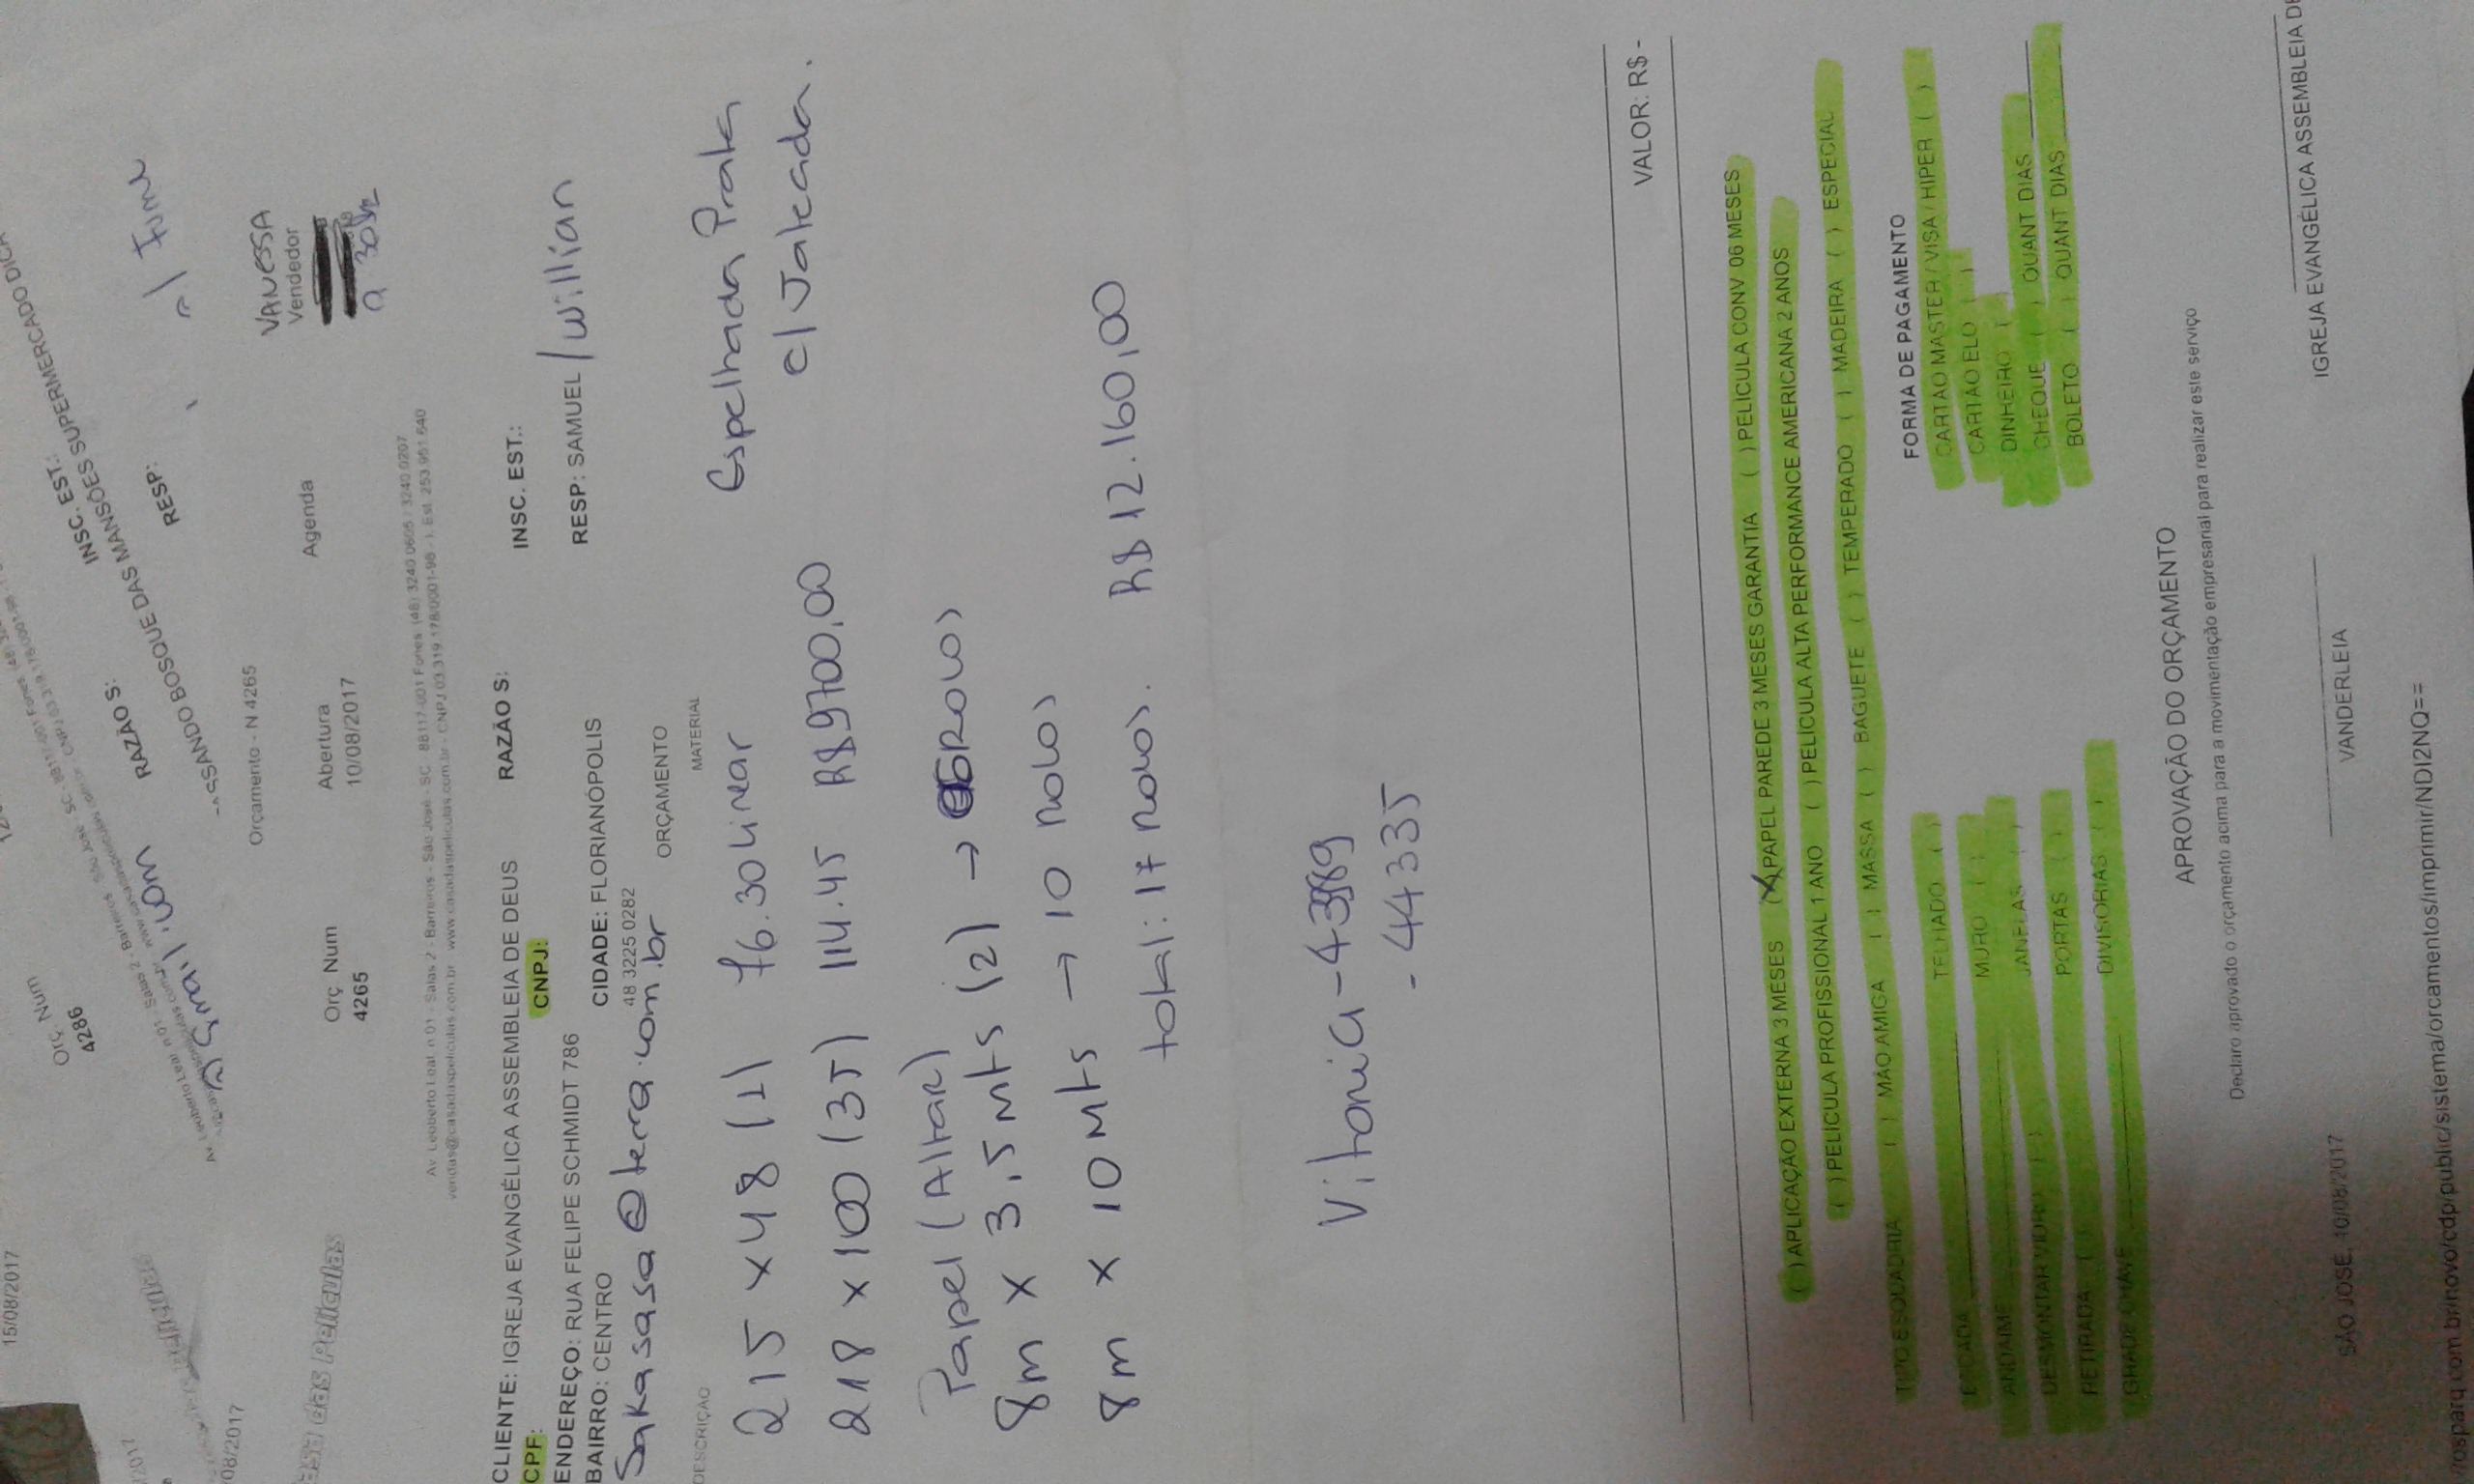 15/08/2017
Orç. Num
4286
INSC. EST.:
RAZÃO S:
MANSÕES SUPERMERCADO
BOSQUE DAS MANSÕES
RESP:
08/2017
Orçamento - N 4265
VANESSA
Vendedor
Orç Num
4265
Abertura
10/08/2017
Agenda
Av Leoberto Leal, n 01 - Salas 2 - Barreiros - São José - SC 88117-001 Fones (48) 3240 0605 / 3240 0207
vendas@casadaspeliculas.com.br - www.casadaspeliculas.com.br - CNPJ 03.319.178/0001-98
CLIENTE: IGREJA EVANGÉLICA ASSEMBLEIA DE DEUS RAZÃO S: INSC. EST.:
CPF: CNPJ:
ENDEREÇO: RUA FELIPE SCHMIDT 786 RESP: SAMUEL / Willian
BAIRRO: CENTRO CIDADE: FLORIANÓPOLIS
48 3225 0282
Sakasasa@terra.com.br
ORÇAMENTO
DESCRIÇÃO MATERIAL
215 x 48 76.30 Linear Espelhada Prata
218 x 100 (35) 114.45 R$9700,00 c/ Jateada.
Papel (Altar)
8m x 3,5 mts (2) → ROLOS
8m x 10 Mts → 10 rolos
total: 17 rolos. R$ 12.160,00
Vitoria - 43969
- 44335
VALOR: R$ -
( ) APLICAÇÃO EXTERNA 3 MESES (X) PAPEL PAREDE 3 MESES GARANTIA ( ) PELICULA CONV 06 MESES
( ) PELÍCULA PROFISSIONAL 1 ANO ( ) PELÍCULA ALTA PERFORMANCE AMERICANA 2 ANOS
TIPO ESQUADRIA ( ) MÃO AMIGA ( ) MASSA ( ) BAGUETE ( ) TEMPERADO ( ) MADEIRA ( ) ESPECIAL
FORMA DE PAGAMENTO
ESCADA TELHADO ( ) CARTAO MASTER / VISA / HIPER ( )
ANDAIME MURO ( ) CARTAO ELO ( )
DESMONTAR VIDRO ( ) JANELAS ( ) DINHEIRO ( )
RETIRADA ( ) PORTAS ( ) CHEQUE ( ) QUANT DIAS
GRADE CHAVE DIVISORIAS ( ) BOLETO ( ) QUANT DIAS
APROVAÇÃO DO ORÇAMENTO
Declaro aprovado o orçamento acima para a movimentação empresarial para realizar este serviço
SÃO JOSÉ, 10/08/2017 VANDERLEIA IGREJA EVANGÉLICA ASSEMBLEIA DE
rosparq.com.br/novo/cdp/public/sistema/orcamentos/imprimir/NDI2NQ==